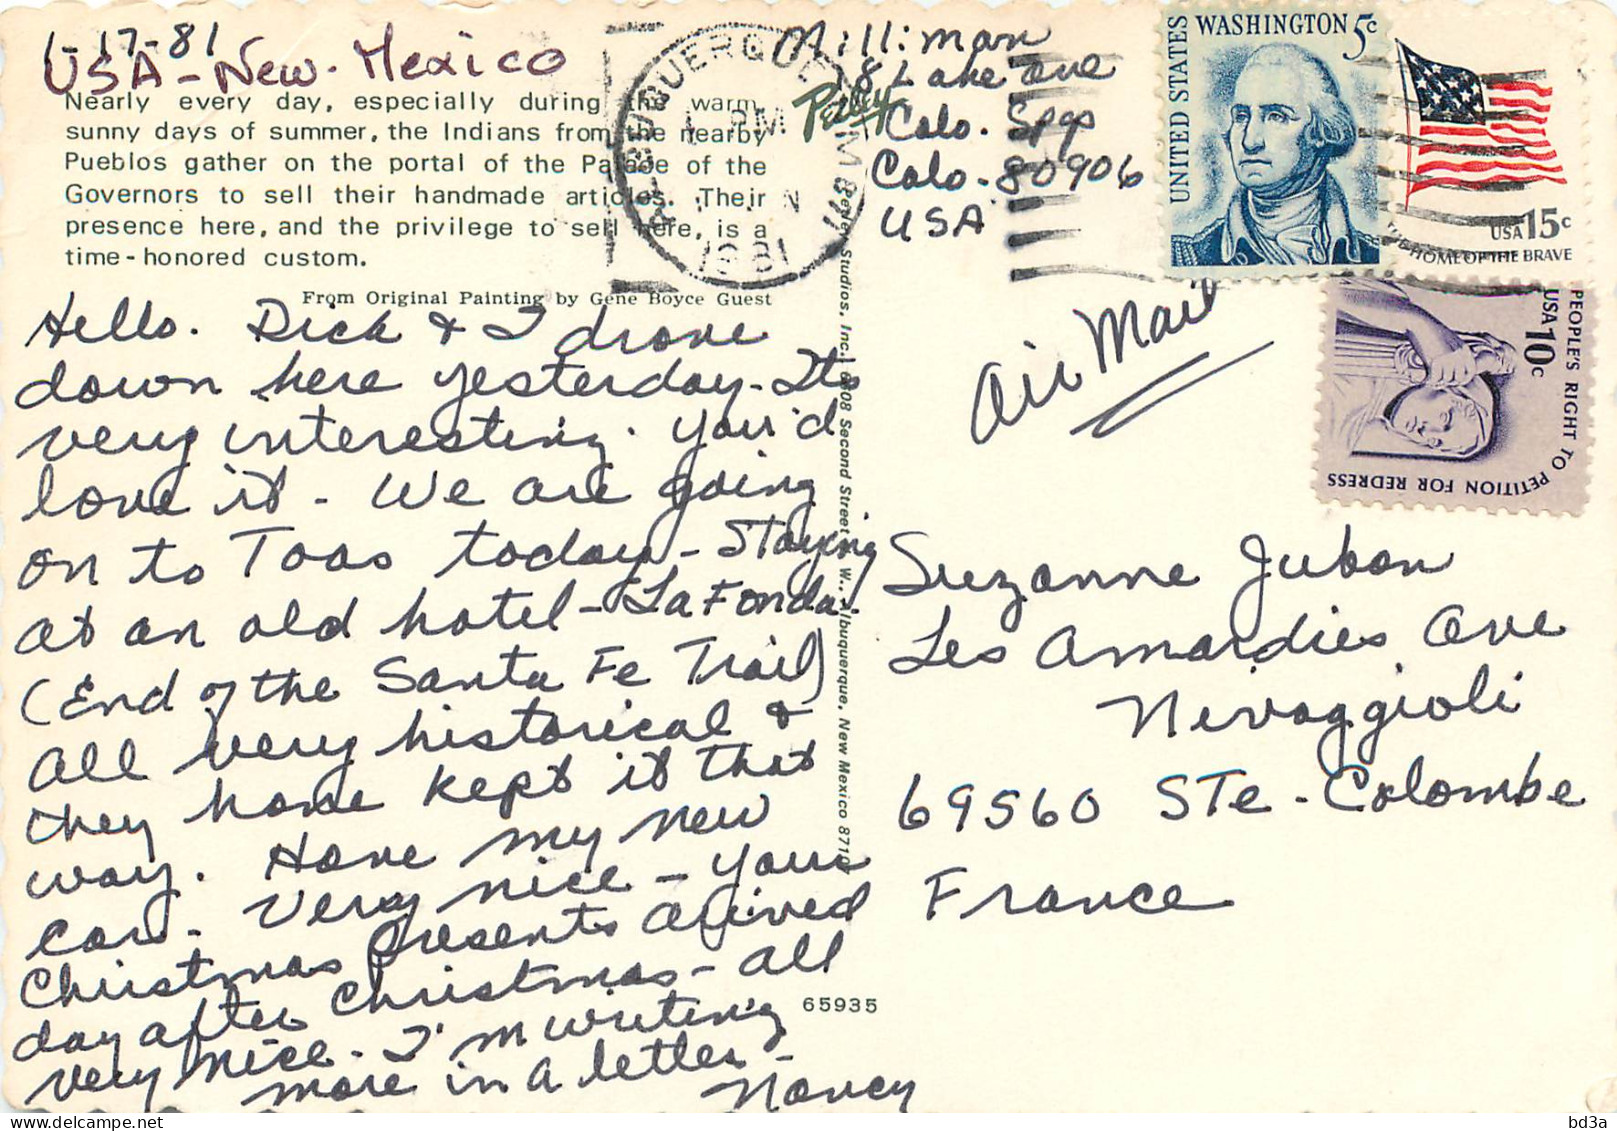 1-17-81
USA - New. Mexico
Nearly every day, especially during the warm,
sunny days of summer, the Indians from the nearby
Pueblos gather on the portal of the Palace of the
Governors to sell their handmade articles. Their
presence here, and the privilege to sell here, is a
time-honored custom.
From Original Painting by Gene Boyce Guest
Hello. Dick & I drove
down here yesterday - Its
very interesting. You'd
love it - We are going
on to Taos today - Staying
at an old hotel - La Fonda.
(End of the Santa Fe Trail)
All very historical &
they have kept it that
way. Have my new
car - Very nice - Your
Christmas presents arrived
day after Christmas - all
very nice. I'm writing
more in a letter -
Nancy
ALBUQUERQUE NM 871
PM
1981
Petley
Studios, Inc. 4808 Second Street N.W., Albuquerque, New Mexico 8710
65935
Milliman
8 Lake Ave
Colo. Spgs
Colo. 80906
USA
UNITED STATES
WASHINGTON 5c
USA 15c
THE HOME OF THE BRAVE
PEOPLE'S RIGHT TO PETITION FOR REDRESS
USA 10c
Air Mail
Suzanne Juban
Les Amardies Ave
Nivaggioli
69560 STe - Colombe
France